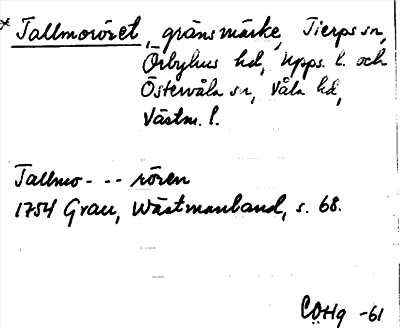 * Tallmoröret, gränsmärke, Tierps sn,
Örbyhus hd, Upps. l. och
Östervåla sn, Våla hd,
Västm. l.
Tallmo - - - rören
1754 Grau, Wästmanland, s. 68.
CÖHg -61